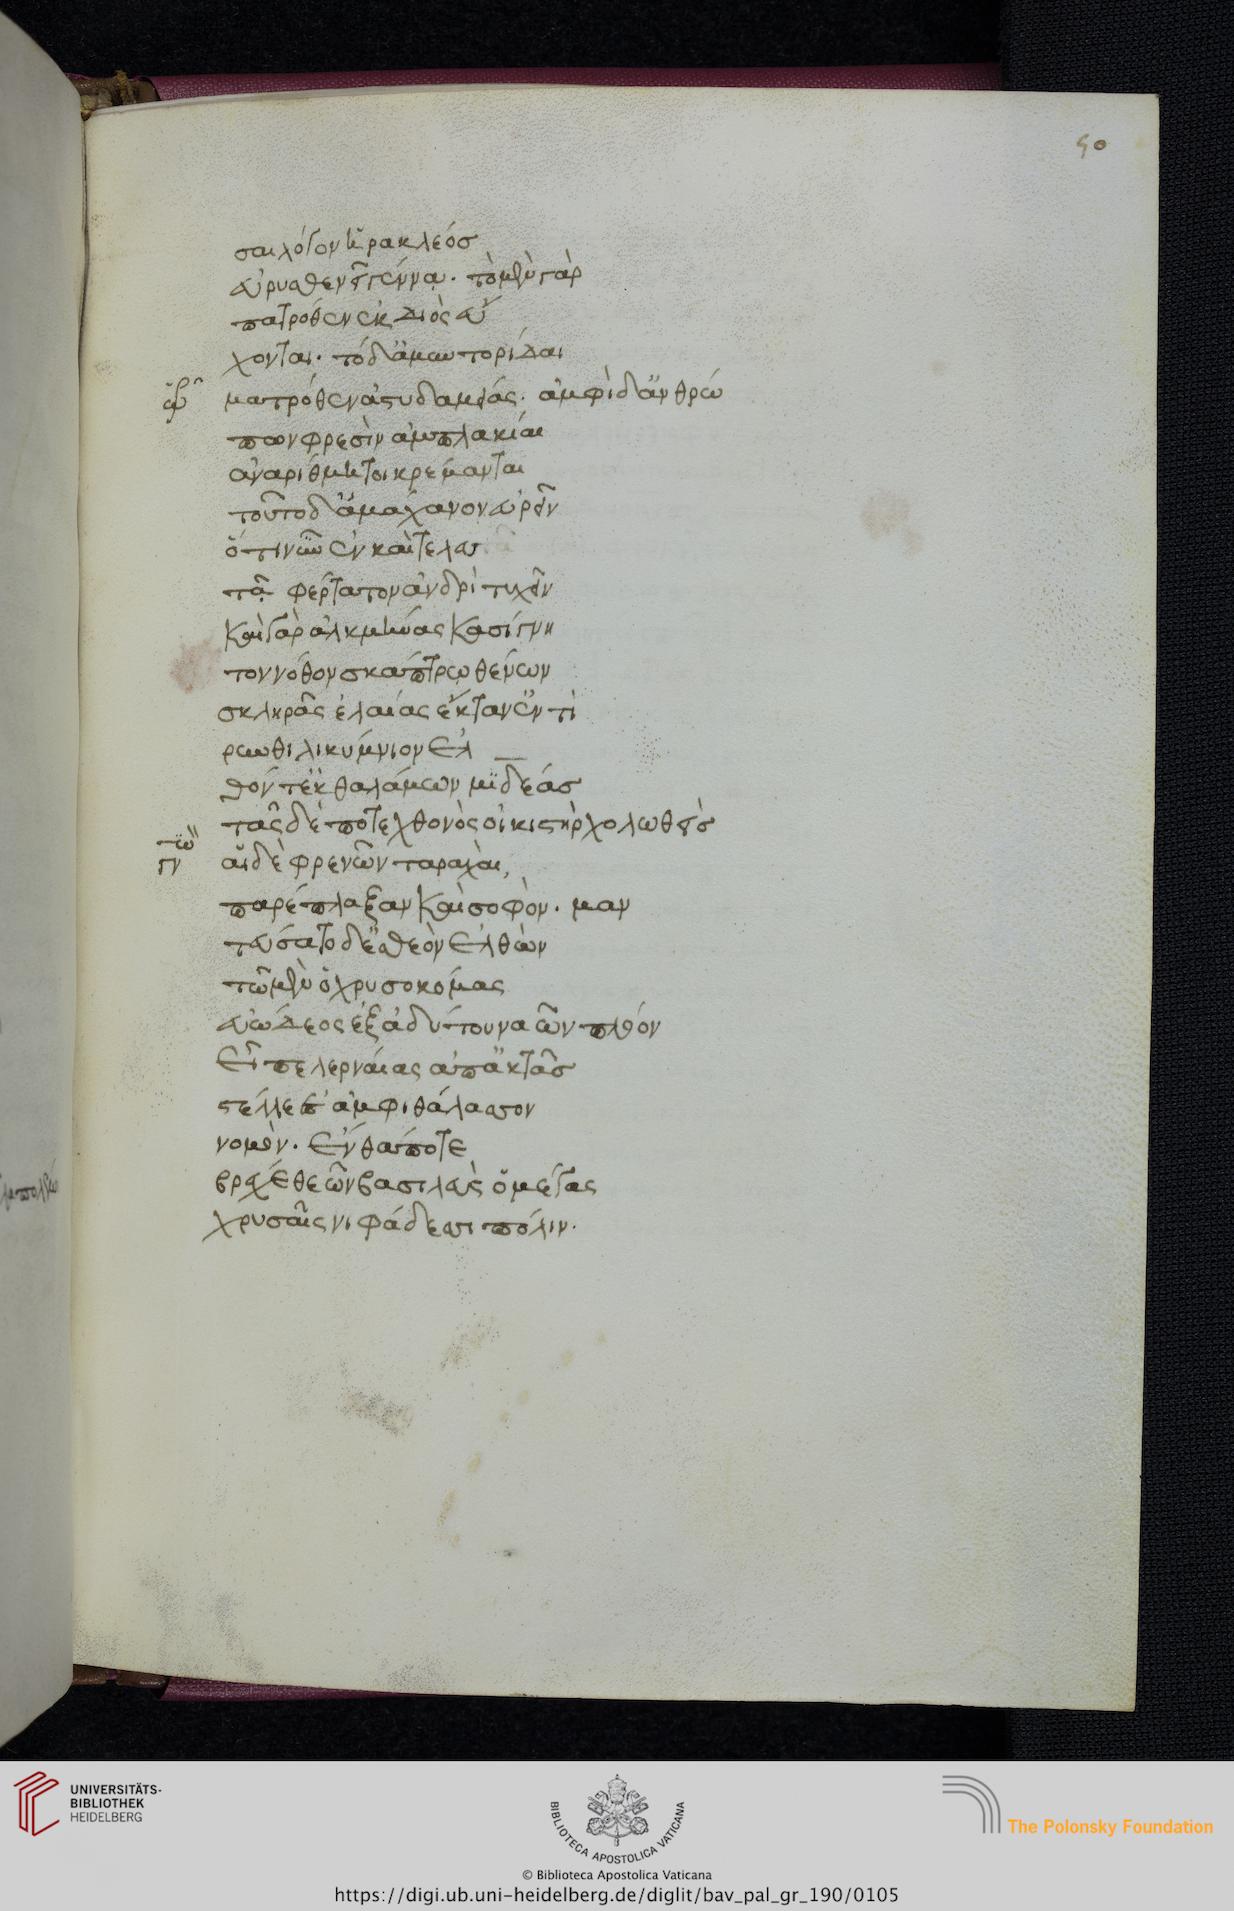 50
σαι λόγον Ἡρακλέος
εὐρυσθενεῖ γέννᾳ. τὸ μὲν γὰρ
πατρόθεν ἐκ Διὸς εὔ
χονται. τὸ δ' ἀμυντορίδαι
ματρόθεν ἀστυδαμείας. ἀμφὶ δ' ἀνθρώ
πων φρεσὶν ἀμπλακίαι
ἀναρίθμητοι κρέμανται
τοῦτο δ' ἀμάχανον εὑρεῖν
ὅ τι νῦν ἐν καὶ τελευ
τᾷ φέρτατον ἀνδρὶ τυχεῖν
καὶ γὰρ ἀλκμήνας κασίγνη
τον νόθον σκάπτρῳ θένων
σκληρᾶς ἐλαίας ἔκτανεν τι
ρυνθι λικύμνιον ἐλ
θόντ' ἐκ θαλάμων μιδέας
τᾶσδέ ποτε χθονὸς οἰκιστὴρ χολωθείς
αἱ δὲ φρενῶν ταραχαὶ,
παρέπλαξαν καὶ σοφόν. μαν
τεύσατο δ' ἐς θεὸν ἐλθών
τῷ μὲν ὁ χρυσοκόμας
εὐώδεος ἐξ ἀδύτου ναῶν πλόον
εἶπε λερναίας ἀπ' ἀκτᾶς
στέλλεν ἐς ἀμφιθάλασσον
νομόν. ἔνθα ποτε
βρέχε θεῶν βασιλεὺς ὁ μέγας
χρυσαῖς νιφάδεσσι πόλιν.
UNIVERSITÄTS-
BIBLIOTHEK
HEIDELBERG
BIBLIOTECA APOSTOLICA VATICANA
© Biblioteca Apostolica Vaticana
The Polonsky Foundation
https://digi.ub.uni-heidelberg.de/diglit/bav_pal_gr_190/0105